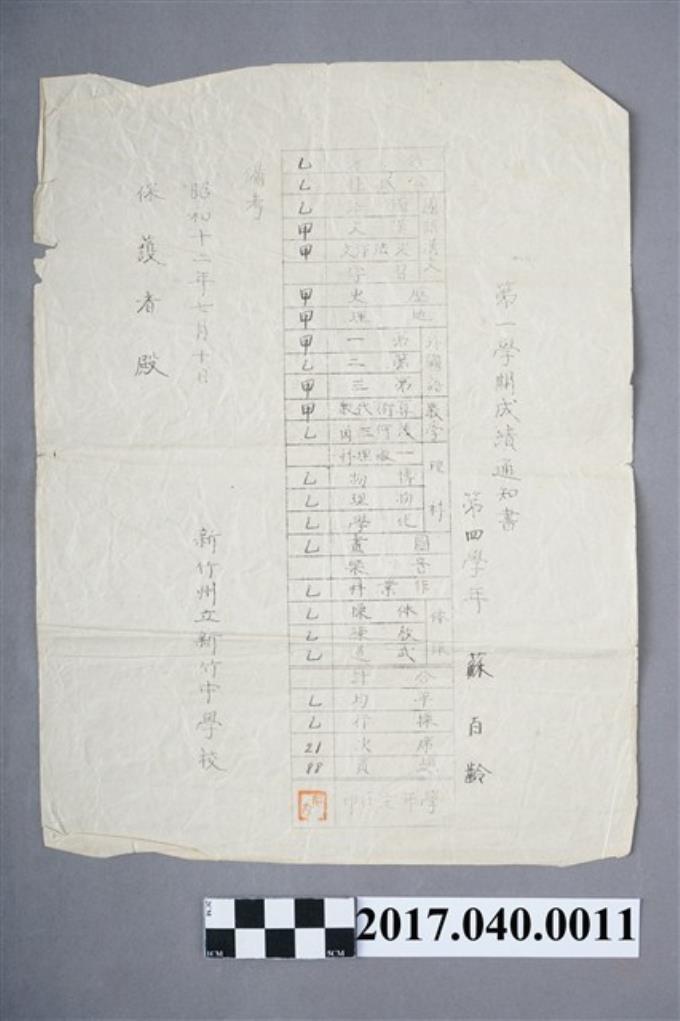 第一學期成績通知書
第四學年 蘇百齡
乙
公民科 乙
國語漢文
乙
漢文 甲
文法作文 甲
習字
歷史 甲
地理 甲
外國語
第一 甲
第二 乙
第三 甲
數學
算術代数 甲
幾何三角 乙
理科
一般理科
博物 乙
物理 乙
化學 乙
圖畫 乙
音樂
作業科 乙
体操
体操 乙
教練 乙
武道 乙
合計
平均 乙
操行 乙
席次 21
總員 88
學年主任印
備考
昭和十二年七月十日
新竹州立新竹中學校
保護者殿
2CM
1CM
5CM
2017.040.0011